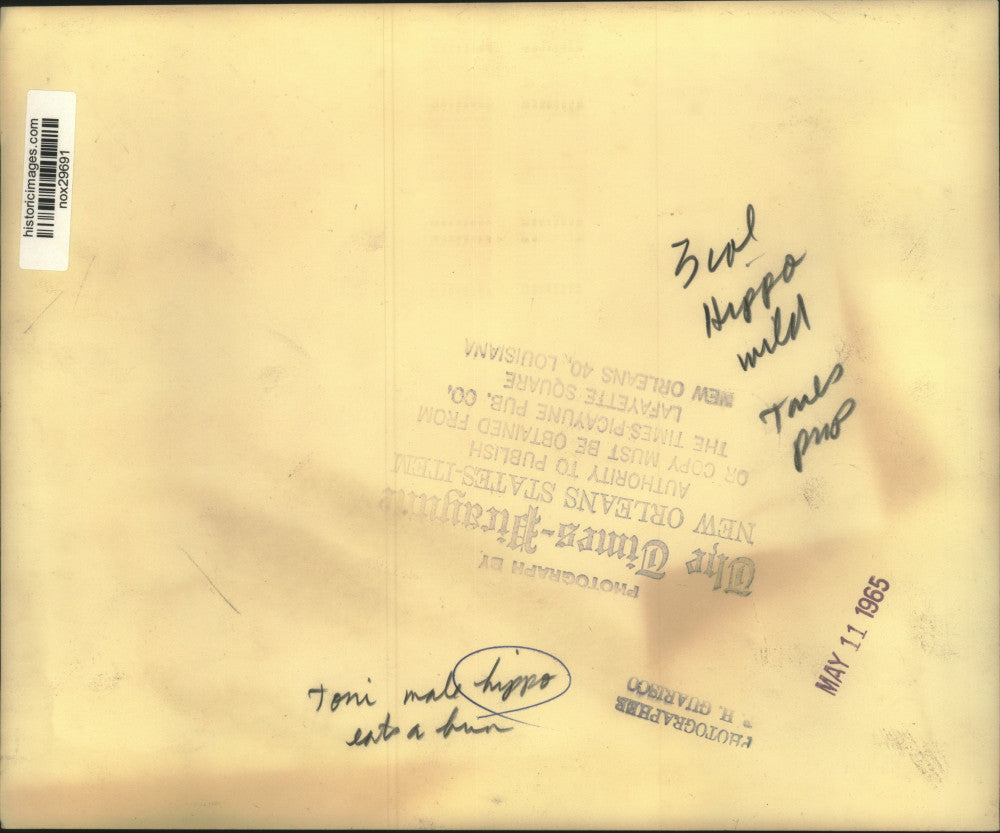 historicimages.com
nox29691
3 col
Hippo
wild
PHOTOGRAPH BY
The Times-Picayune
NEW ORLEANS STATES-ITEM
AUTHORITY TO PUBLISH
OR COPY MUST BE OBTAINED FROM
THE TIMES-PICAYUNE PUB. CO,
LAFAYETTE SQUARE
NEW ORLEANS 40, LOUISIANA
MAY 11 1965
PHOTOGRAPHER
H. GUARISCO
Toni male hippo
eats a bun